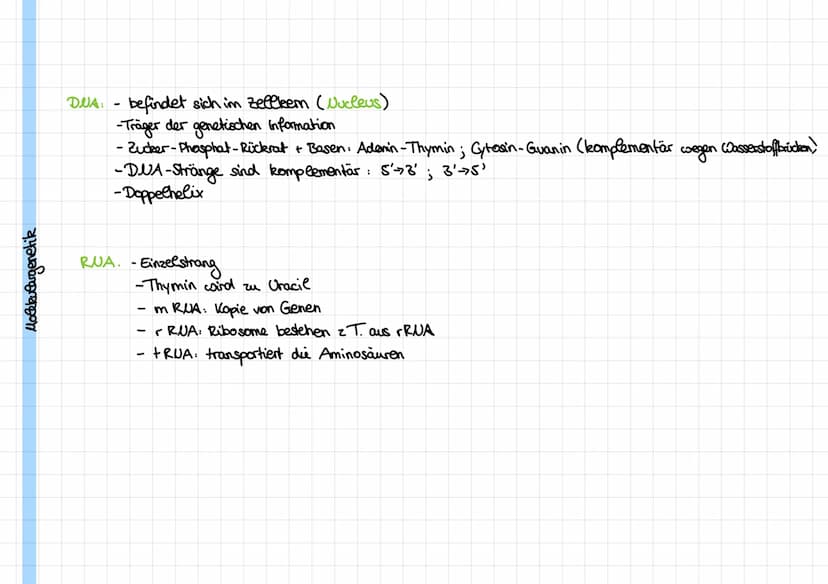 DNA: - befindet sich im Zellkern (Nucleus)
- Träger der genetischen Information
- Zucker-Phosphat-Rückrat + Basen: Adenin-Thymin ; Cytosin-Guanin (komplementär wegen Wasserstoffbrücken)
- DNA-Stränge sind komplementär : 5'→3' ; 3'→5'
- Doppelhelix
Molekulargenetik
RNA: - Einzelstrang
- Thymin wird zu Uracil
- mRNA: Kopie von Genen
- rRNA: Ribosome bestehen z.T. aus rRNA
- tRNA: transportiert die Aminosäuren